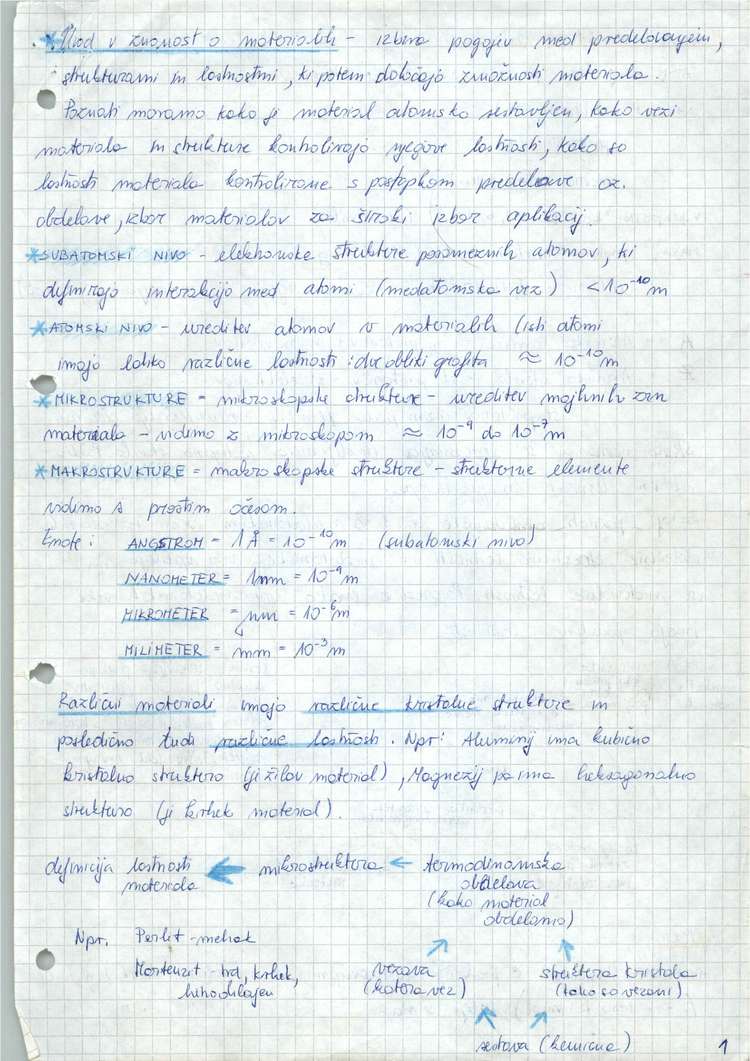 * Uvod v znanost o materialih - izbira pogojev med predelovanjem,
strukturami in lastnostmi, ki potem določajo zmožnosti materiala.
Poznati moramo kako je material atomsko sestavljen, kako vezi
materiala in strukture kontrolirajo njegove lastnosti, kako so
lastnosti materiala kontrolirane s postopkom predelave oz.
obdelave, izbor materialov za široki izbor aplikacij.
* SUBATOMSKI NIVO - elektronske strukture posameznih atomov, ki
definirajo interakcijo med atomi (medatomska vez) < 10⁻¹⁰ m
* ATOMSKI NIVO - ureditev atomov v materialih (isti atomi
imajo lahko različne lastnosti: dve obliki grafita ≈ 10⁻¹⁰ m
* MIKROSTRUKTURE = mikroskopske strukture - ureditev majhnih zrn
materiala - vidimo z mikroskopom ≈ 10⁻⁹ do 10⁻⁷ m
* MAKROSTRUKTURE = makroskopske strukture - strukturne elemente
vidimo s prostim očesom.
Enote: ANGSTROM = 1 Å = 10⁻¹⁰ m (subatomski nivo)
NANOMETER = 1nm = 10⁻⁹ m
MIKROMETER = μm = 10⁻⁶ m
MILIMETER = mm = 10⁻³ m
Različni materiali imajo različne kristalne strukture in
posledično tudi različne lastnosti. Npr: Aluminij ima kubično
kristalno strukturo (je žilav material), Magnezij pa ima heksagonalno
strukturo (je krhek material).
definicija lastnosti materiala ← mikrostruktura ← termodinamska
obdelava
(kako material
obdelamo)
Npr. Perlit - mehak
Martenzit - trd, krhek,
vezava
(katera vez)
struktura kristala
(kako so vezani)
sestava (kemična)
1